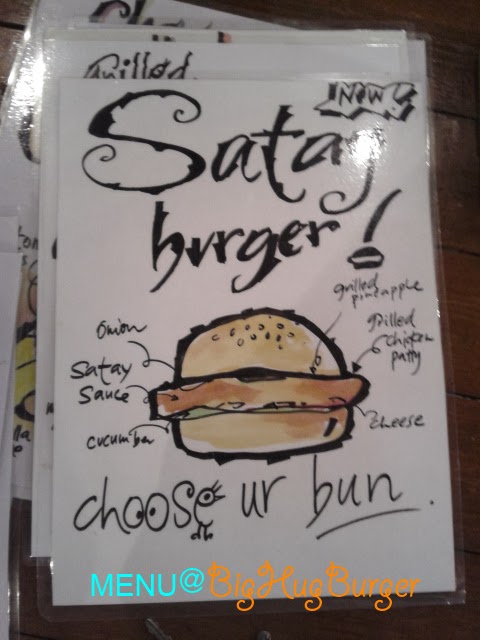 Grilled
NOW!
Satay
burger!
grilled
pineapple
Onion
grilled
chicken
patty
Satay
Sauce
cheese
cucumber
choose ur bun.
MENU@BigHugBurger